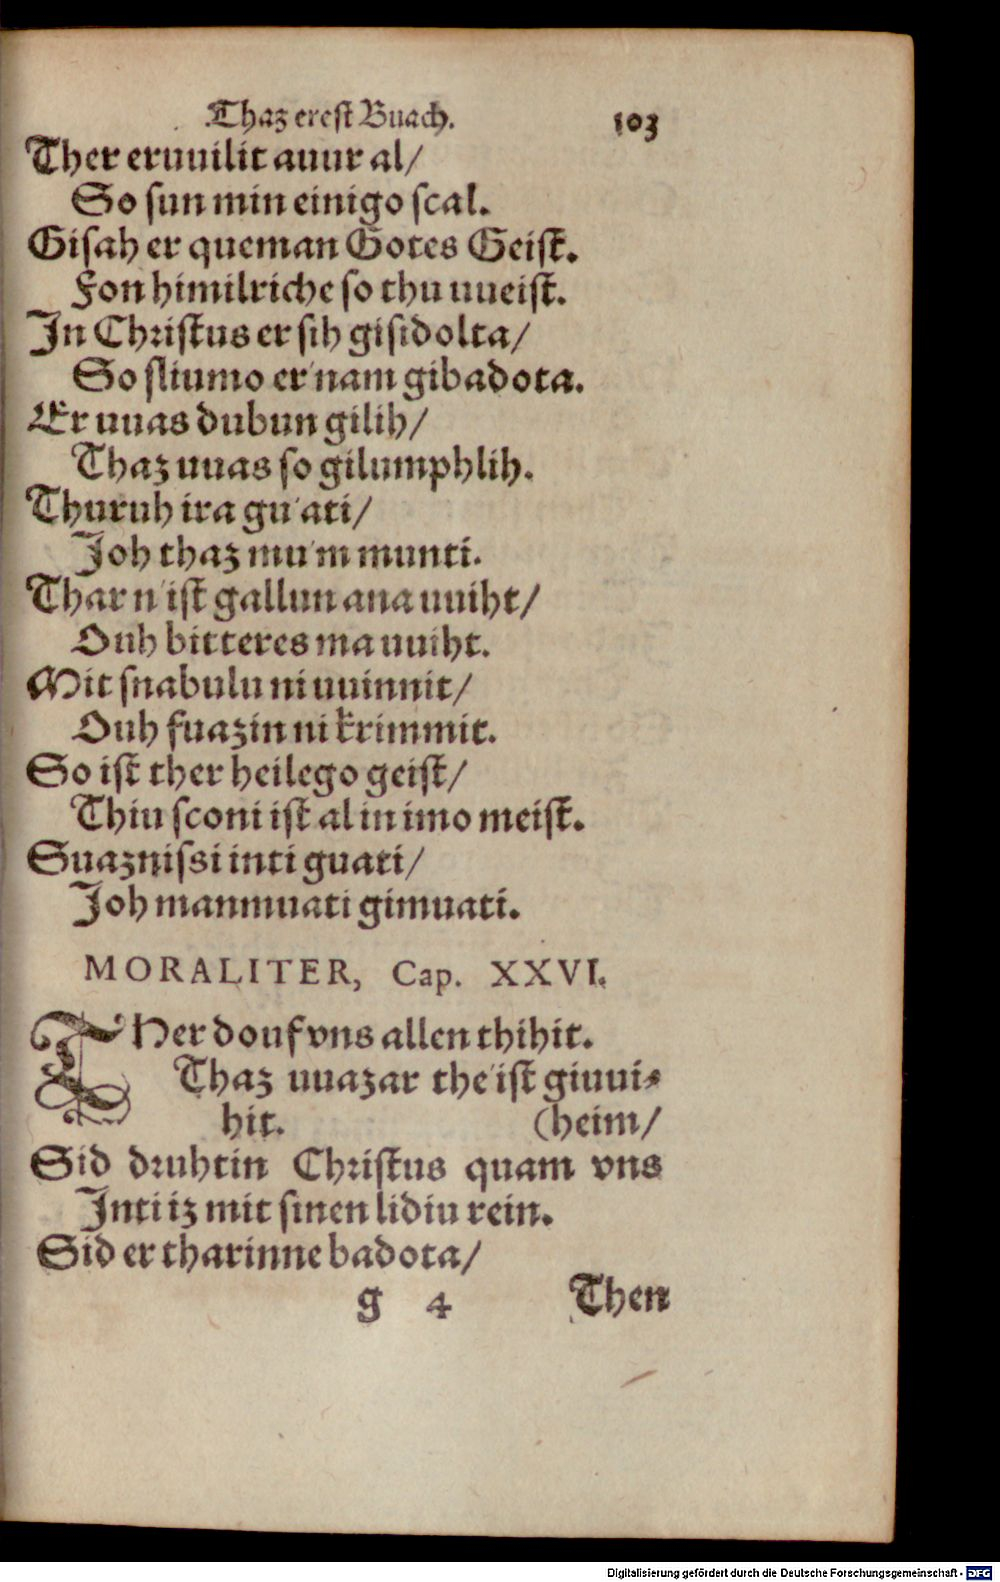 Thaz erest Buach. 103
Ther eruuilit auur al/
So sun min einigo scal.
Gisah er queman Gotes Geist.
Fon himilriche so thu uueist.
In Christus er sih gisidolta/
So sliumo er'nam gibadota.
Er uuas dubun gilih/
Thaz uuas so gilumphlih.
Thuruh ira gu'ati/
Joh thaz mu'm munti.
Thar n'ist gallun ana uuiht/
Ouh bitteres ma uuiht.
Mit snabulu ni uuinnit/
Ouh fuazin ni krimmit.
So ist ther heilego geist/
Thiu sconi ist al in imo meist.
Suaznissi inti guati/
Joh manmuati gimuati.
MORALITER, Cap. XXVI.
THer douf vns allen thihit.
Thaz uuazar the'ist giuui-
hit. (heim/
Sid druhtin Christus quam vns
Inti iz mit sinen lidiu rein.
Sid er tharinne badota/
g 4 Then
Digitalisierung gefördert durch die Deutsche Forschungsgemeinschaft - DFG